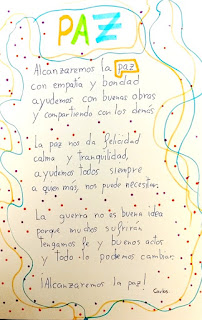 PAZ
Alcanzaremos la paz
con empatía y bondad
ayudemos con buenas obras
y compartiendo con los demás
La paz nos da felicidad
calma y tranquilidad,
ayudemos todos siempre
a quien más, nos puede necesitar.
La guerra no es buena idea
porque muchos sufrirán
tengamos fe y buenos actos
y todo lo podemos cambiar,
¡Alcanzaremos la paz!
Carlos